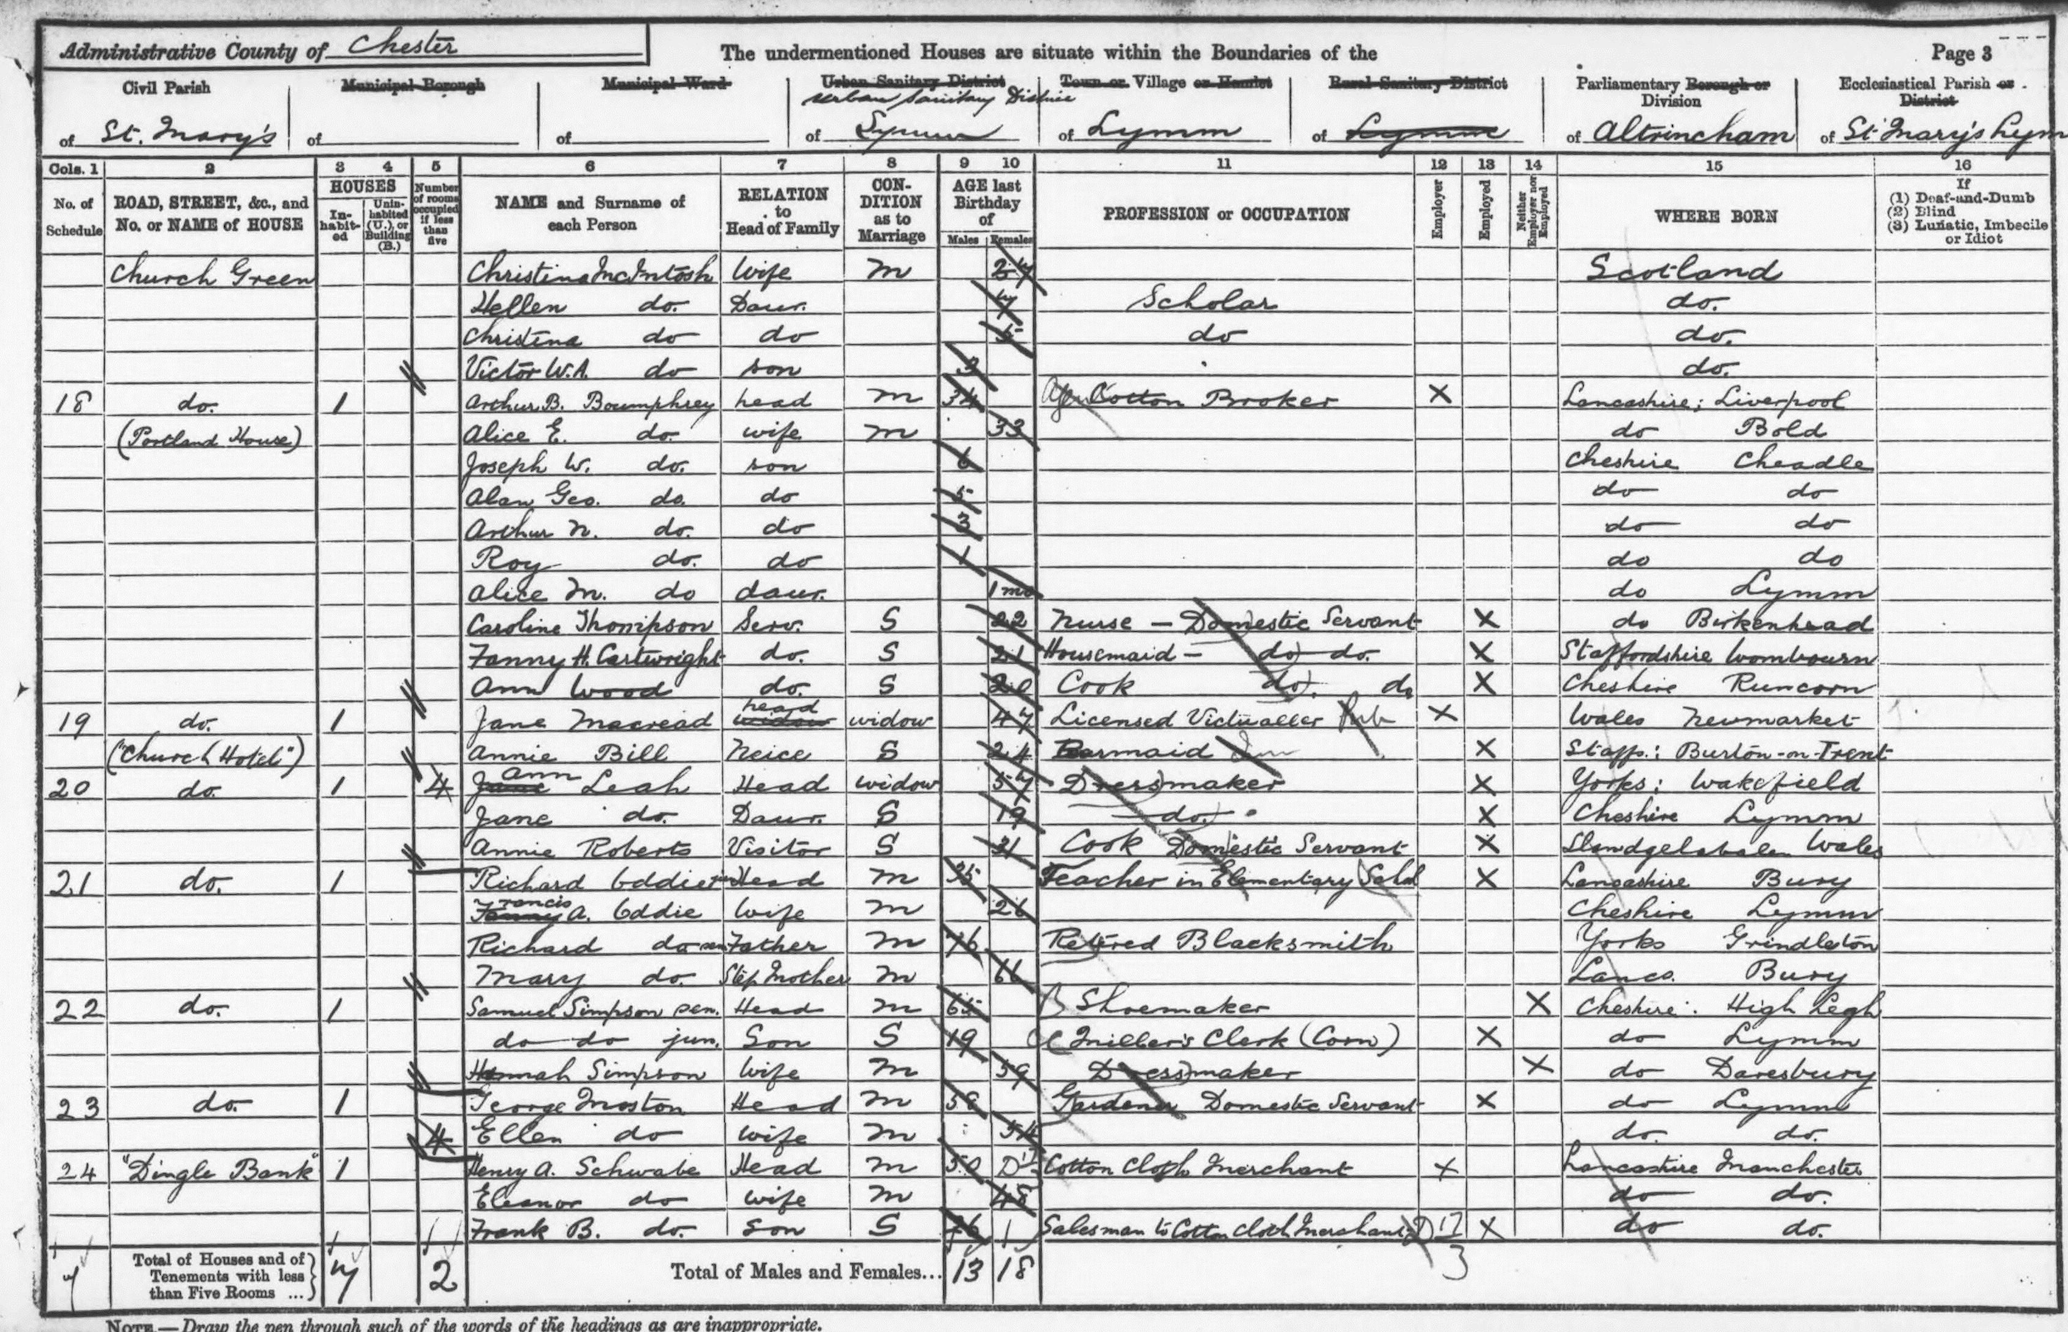 Administrative County of Chester
The undermentioned Houses are situate within the Boundaries of the
Page 3
Civil Parish of St. Mary's
Municipal Borough of
Municipal Ward of
Urban Sanitary District
Urban Sanitary District of Lymm
Town or Village or Hamlet of Lymm
Rural Sanitary District of Lymm
Parliamentary Borough or Division of Altrincham
Ecclesiastical Parish or District of St Mary's Lym
Cols. 1 2 3 4 5 6 7 8 9 10 11 12 13 14 15 16
No. of Schedule
ROAD, STREET, &c., and No. or NAME of HOUSE
HOUSES
In-habit-ed
Unin-habited (U.), or Building (B.)
Number of rooms occupied if less than five
NAME and Surname of each Person
RELATION to Head of Family
CON-DITION as to Marriage
AGE last Birthday of
Males Females
PROFESSION or OCCUPATION
Employer
Employed
Neither Employer nor Employed
WHERE BORN
If
(1) Deaf-and-Dumb
(2) Blind
(3) Lunatic, Imbecile or Idiot
Church Green Christina McIntosh Wife M 27 Scotland
Hellen do. Daur. 7 Scholar do.
Christina do do 5 do do.
Victor W.A. do son 3 do.
18 do. 1 Arthur B. Boumphrey head M 34 Cotton Broker X Lancashire; Liverpool
(Portland House) Alice E. do. wife M 33 do Bold
Joseph W. do. son 6 Cheshire Cheadle
Alan Geo. do. do 5 do do
Arthur N. do. do 3 do do
Roy do. do 1 do do
Alice M. do daur. 1 mo do Lymm
Caroline Thompson Serv. S 22 Nurse — Domestic Servant X do Birkenhead
Fanny H. Cartwright do. S 21 Housemaid — do do. X Staffordshire Wombourn
Ann Wood do. S 20 Cook do. do X Cheshire Runcorn
19 do. 1 Jane Macread widow head widow 47 Licensed Victualler Pub X Wales Newmarket
("Church Hotel") Annie Bill Neice S 24 Barmaid Inn X Staffs: Burton-on-Trent
20 do. 1 4 Jane Ann Leah Head widow 57 Dressmaker X Yorks: Wakefield
Jane do. Daur. S 19 do. X Cheshire Lymm
Annie Roberts Visitor S 21 Cook Domestic Servant X Wales
21 do. 1 Richard Eddie jun Head M 35 Teacher in Elementary Schl X Lancashire Bury
Fanny Francis A. Eddie Wife M 26 Cheshire Lymm
Richard do sen Father M 76 Retired Blacksmith Yorks Grindleton
Mary do. Step Mother M 66 Lancs. Bury
22 do. 1 Samuel Simpson sen. Head M 65 Shoemaker X Cheshire: High Legh
do do jun. Son S 19 Miller's Clerk (Corn) X do Lymm
Hannah Simpson Wife M 59 Dressmaker X do Daresbury
23 do. 1 George Moston Head M 58 Gardener Domestic Servant X do Lymm
4 Ellen do wife M 54 do. do.
24 "Dingle Bank" 1 Henry A. Schwabe Head M 50 Cotton Cloth Merchant X Lancashire Manchester
Eleanor do wife M 48 do do.
Frank B. do. Son S 26 Salesman to Cotton Cloth Merchant X do do.
7 Total of Houses and of Tenements with less than Five Rooms ... 7 2 Total of Males and Females... 13 18
NOTE.—Draw the pen through such of the words of the headings as are inappropriate.